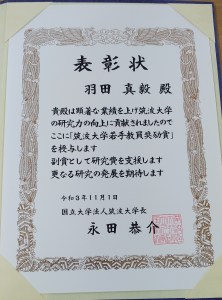 表彰状
羽田 真毅 殿
貴殿は顕著な業績を上げ筑波大学
の研究力の向上に貢献されましたので
ここに「筑波大学若手教員奨励賞」
を授与します
副賞として研究費を支援します
更なる研究の発展を期待します
令和3年11月1日
国立大学法人筑波大学長
永田 恭介